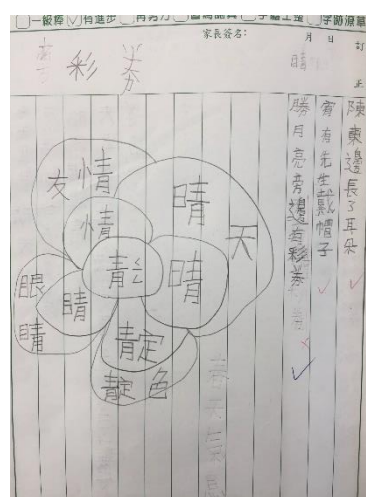 一級棒 有進步 再努力 書寫認真 字體工整 字跡潦草
家長簽名： 月 日 訂正
陳東邊長了耳朵
賓有先生戴帽子
勝月亮旁邊有彩券
彩券
友情
情
晴天
晴
青
眼睛
睛
靛
靛色